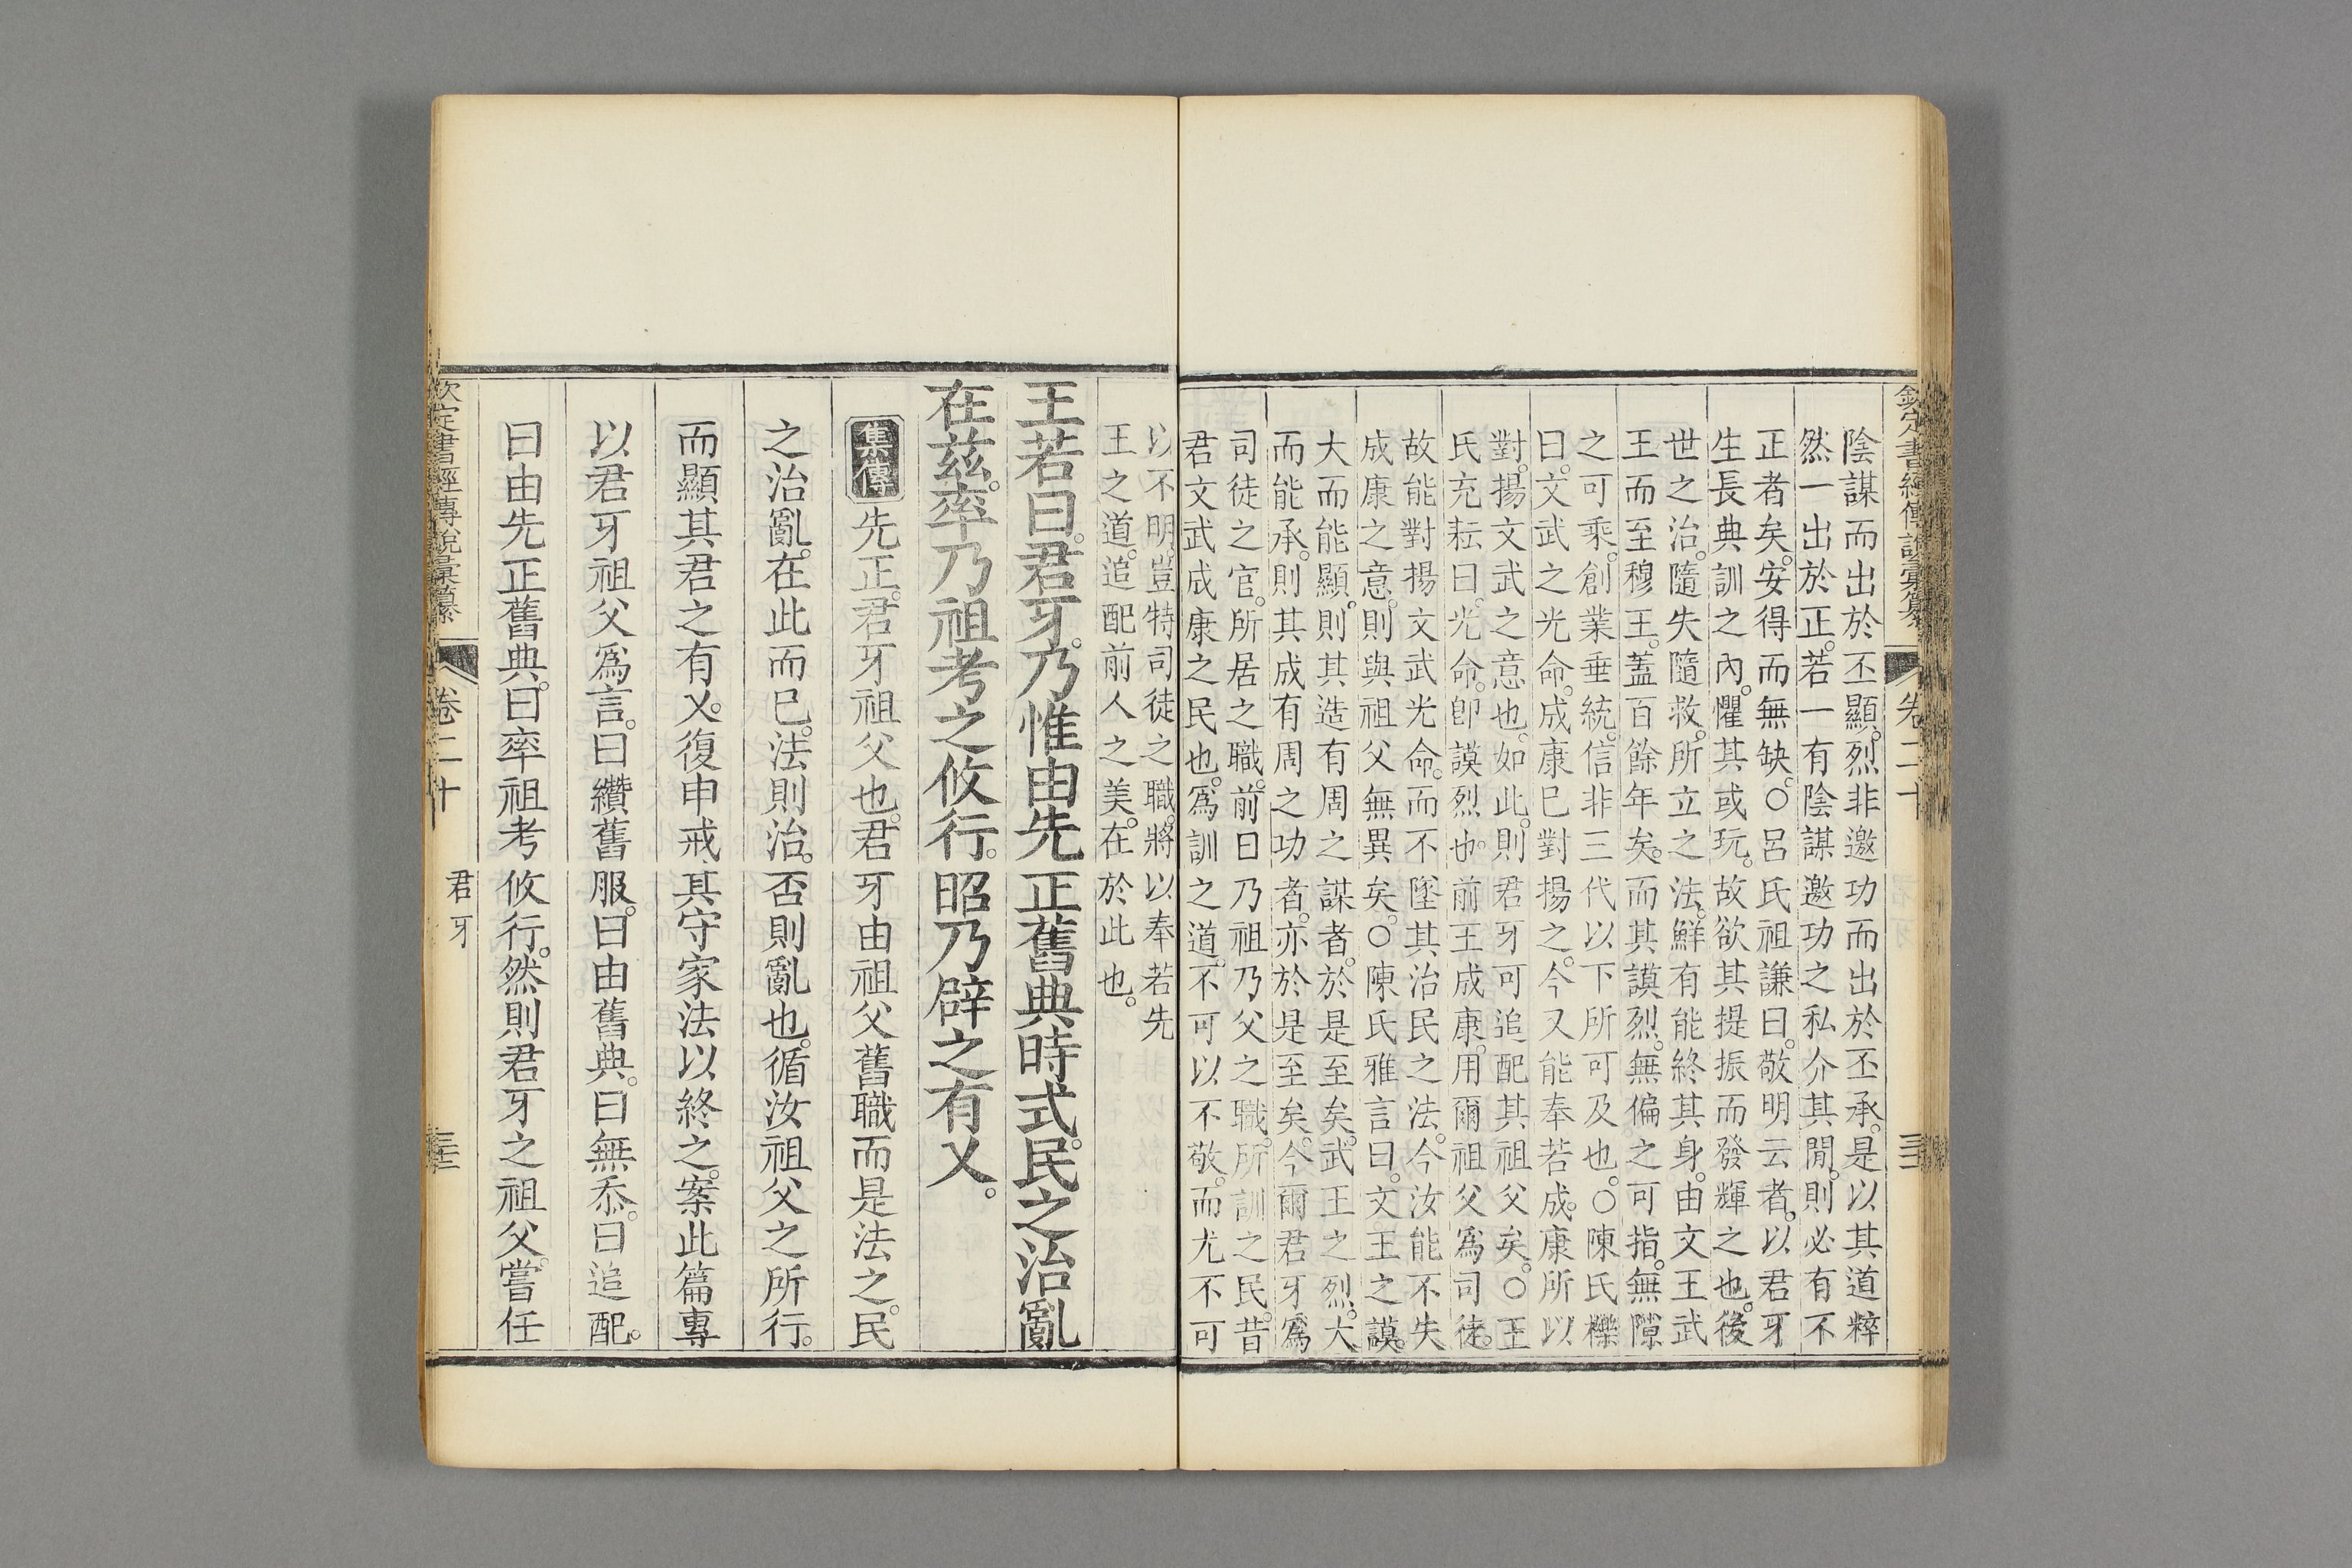 欽定書經傳說彙纂 卷二十
陰謀而出於丕顯。烈非邀功而出於丕承。是以其道粹
然一出於正。若一有陰謀邀功之私介其閒。則必有不
正者矣。安得而無缺。○呂氏祖謙曰。敬明云者。以君牙
生長典訓之內。懼其或玩。故欲其提振而發輝之也。後
世之治。隨失隨救。所立之法。鮮有能終其身。由文王武
王而至穆王。蓋百餘年矣。而其謨烈。無偏之可指。無隙
之可乘。創業垂統。信非三代以下所可及也。○陳氏櫟
曰。文武之光命。成康巳對揚之。今又能奉若成康所以
對揚文武之意也。如此。則君牙可追配其祖父矣。○王
氏充耘曰。光命。卽謨烈也。前王成康。用爾祖父爲司徒。
故能對揚文武光命。而不墜其治民之法。今汝能不失
成康之意。則與祖父無異矣。○陳氏雅言曰。文王之謨。
大而能顯。則其造有周之謀者。於是至矣。武王之烈。大
而能承。則其成有周之功者。亦於是至矣。今爾君牙爲
司徒之官。所居之職。前日乃祖乃父之職。所訓之民。昔
君文武成康之民也。爲訓之道。不可以不敬。而尤不可
以不明。豈特司徒之職。將以奉若先
王之道。追配前人之美。在於此也。
王若曰。君牙。乃惟由先正舊典時式。民之治亂
在茲。率乃祖考之攸行。昭乃辟之有乂。
集傳 先正。君牙祖父也。君牙由祖父舊職而是法之。民
之治亂。在此而巳。法則治。否則亂也。循汝祖父之所行。
而顯其君之有乂。復申戒其守家法以終之。案此篇專
以君牙祖父爲言。曰纘舊服。曰由舊典。曰無忝。曰追配。
曰由先正舊典。曰率祖考攸行。然則君牙之祖父。嘗任
欽定書經傳說彙纂 卷二十 君牙